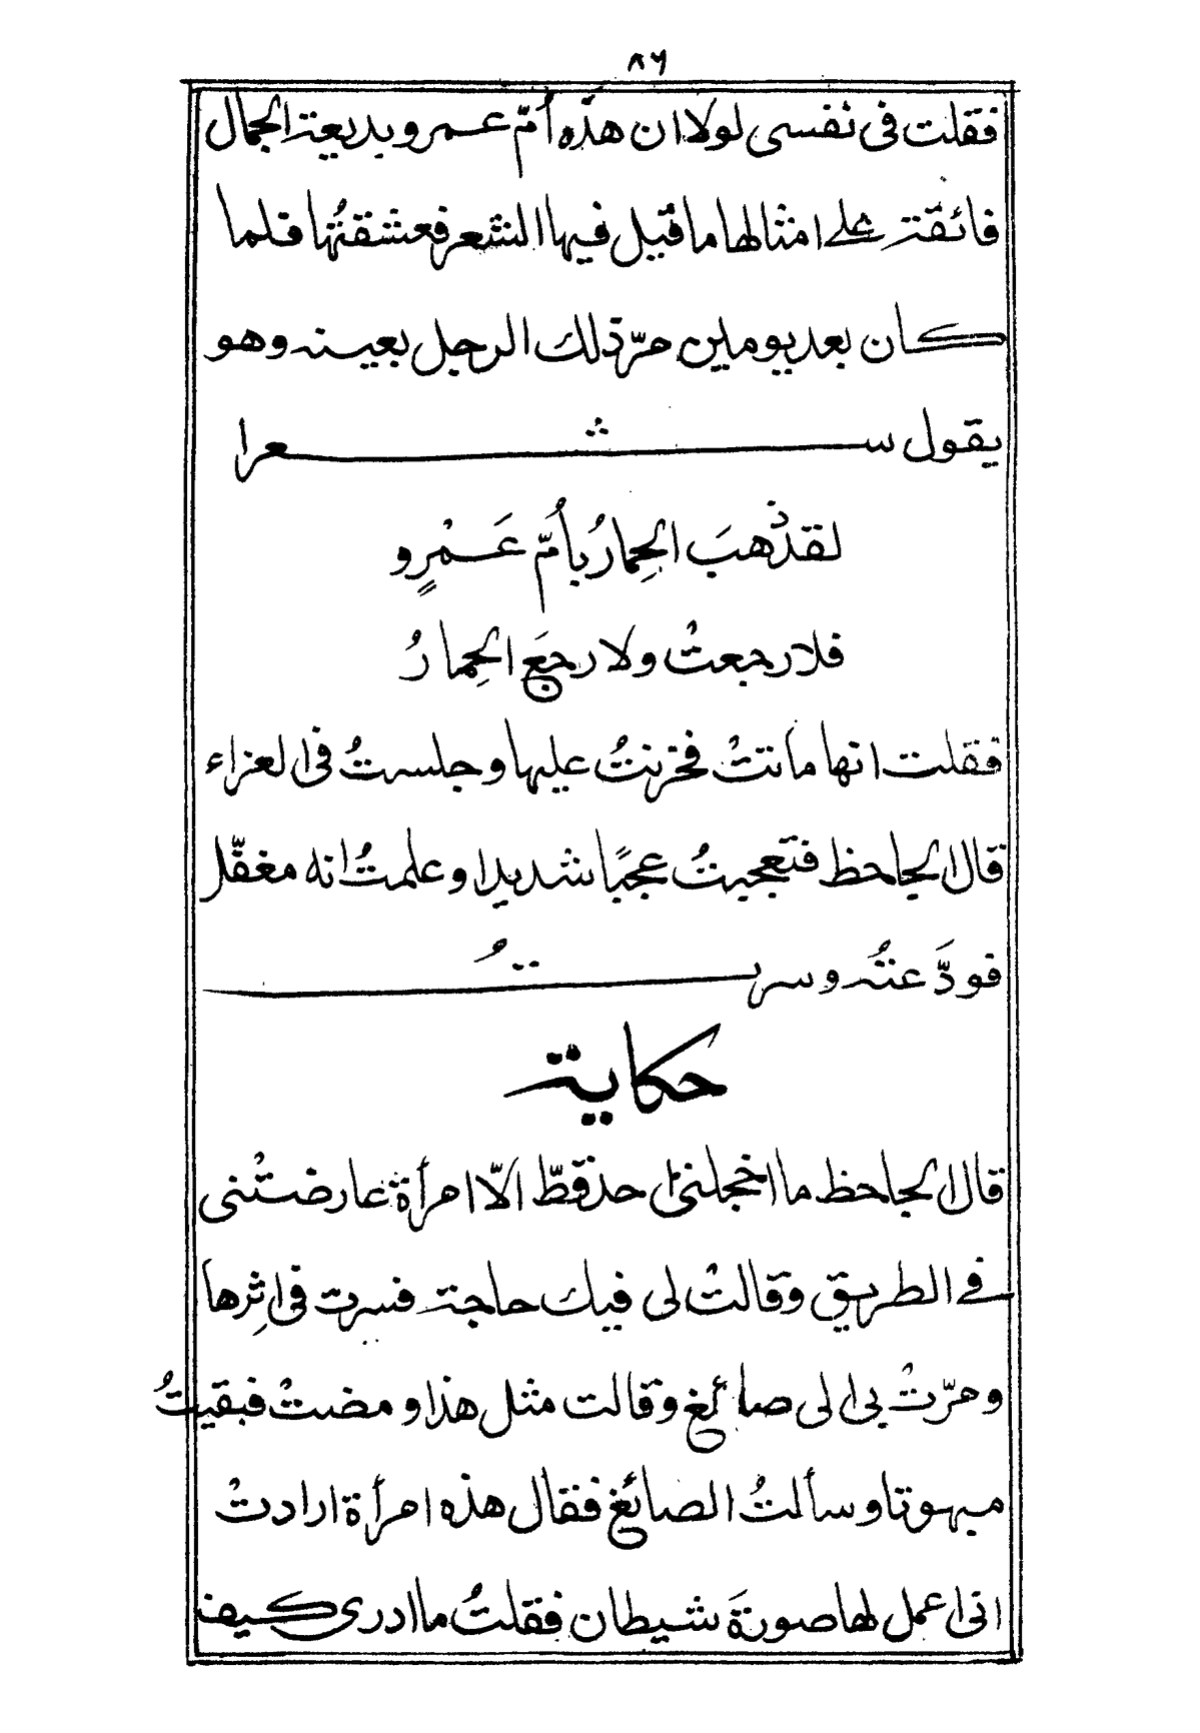 ٨٦
فقلت فى نفسى لولا ان هذه اُمّ عمرو بديعة الجمال
فائقة على امثالها ما قيل فيها الشعر فعشقتُها فلما
كان بعد يومين مرّ ذلك الرجل بعينه وهو
يقول شعرا
لقد ذهبَ الحِمارُ باُمّ عَمْرٍو
فلا رجعتْ ولا رجعَ الحِمارُ
فقلت انها ماتتْ فحزنتُ عليها وجلستُ فى العزاء
قال الجاحظ فتعجبتُ عجبًا شديدا وعلمتُ انه مغفّل
فودَّعتُه وسرتُ
حكاية
قال الجاحظ ما اخجلنى احد قطّ الّا امرأة عارضتْنى
فى الطريق وقالتْ لى فيك حاجة فسرت فى اثِرها
ومرّتْ بى الى صائغ وقالت مثل هذا ومضتْ فبقيتُ
مبهوتا وسألتُ الصائغ فقال هذه امرأة ارادتْ
انى اعمل لها صورةَ شيطان فقلتُ ما ادرى كيف